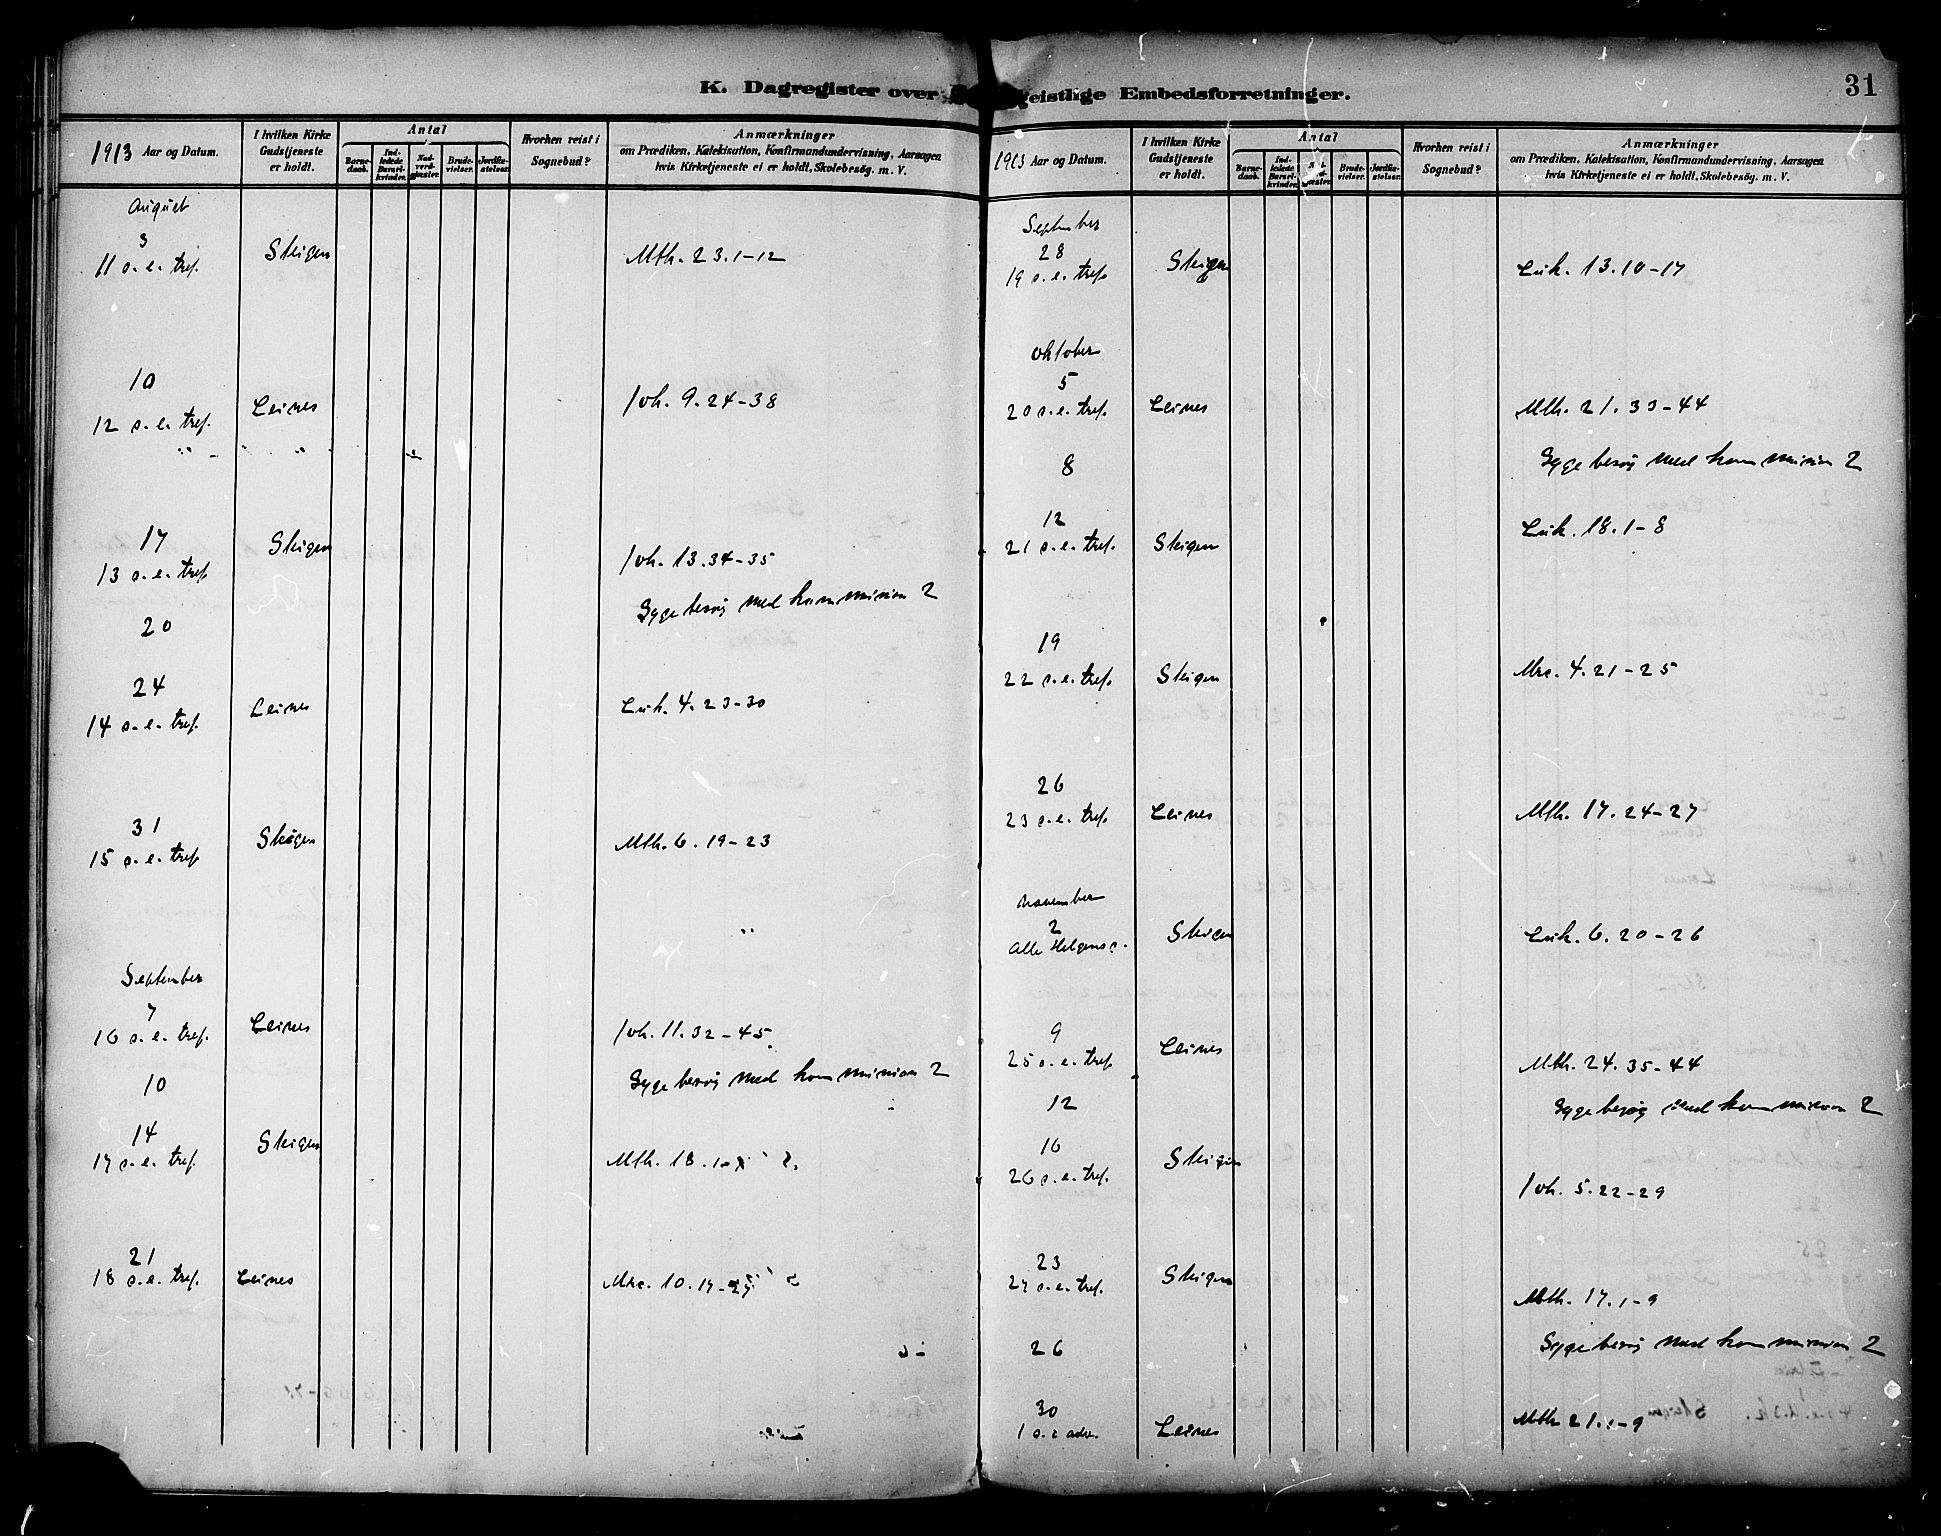 K. Dagregister over geistlige Embedsforretninger.
31
1913 Aar og Datum.
I hvilken Kirke Gudstjeneste er holdt.
Antal
Barne-daab.
Ind-ledede Barsel-kvinder.
Nad-verd-gjæster.
Brude-vielser.
Jordfæ-stelser.
Hvorhen reist i Sognebud?
Anmærkninger
om Prædiken, Katekisation, Konfirmandundervisning, Aarsagen
hvis Kirketjeneste ei er holdt, Skolebesøg. m. V.
August
3
11 s. e. tref. Steigen Mth. 23.1-12
10
12 s. e. tref. Leines Joh. 9.24-38
17
13 s. e. tref. Steigen Joh. 13.34-35
20 Sygebesøg med kommunion 2
24
14 s. e. tref. Leines Luk. 4.23-30
31
15 s. e. tref. Steigen Mth. 6.19-23
September
7
16 s. e. tref. Leines Joh. 11.32-45
10 Sygebesøg med kommunion 2
14
17 s. e. tref. Steigen Mth. 18.
21
18 s. e. tref. Leines Mrc. 10.17-
1913 Aar og Datum.
I hvilken Kirke Gudstjeneste er holdt.
Antal
Barne-daab.
Ind-ledede Barsel-kvinder.
Brude-vielser.
Jordfæ-stelser.
Hvorhen reist i Sognebud?
Anmærkninger
om Prædiken, Katekisation, Konfirmandundervisning, Aarsagen
hvis Kirketjeneste ei er holdt, Skolebesøg. m. V.
September
28
19 s. e. tref. Steigen Luk. 13.10-17
Oktober
5
20 s. e. tref. Leines Mth. 21.33-44
8 Sygebesøg med kommunion 2
12
21 s. e. tref. Steigen Luk. 18.1-8
19
22 s. e. tref. Steigen Mrc. 4.21-25
26
23 s. e. tref. Leines Mth. 17.24-27
November
2
Alle Helgens s. Steigen Luk. 6.20-26
9
25 s. e. tref. Leines Mth. 24.35-44
12 Sygebesøg med kommunion 2
16
26 s. e. tref. Steigen Joh. 5.22-29
23
27 s. e. tref. Steigen Mth. 17.1-9
26 Sygebesøg med kommunion 2
30
1 s. i adv. Leines Mth 21.1-9